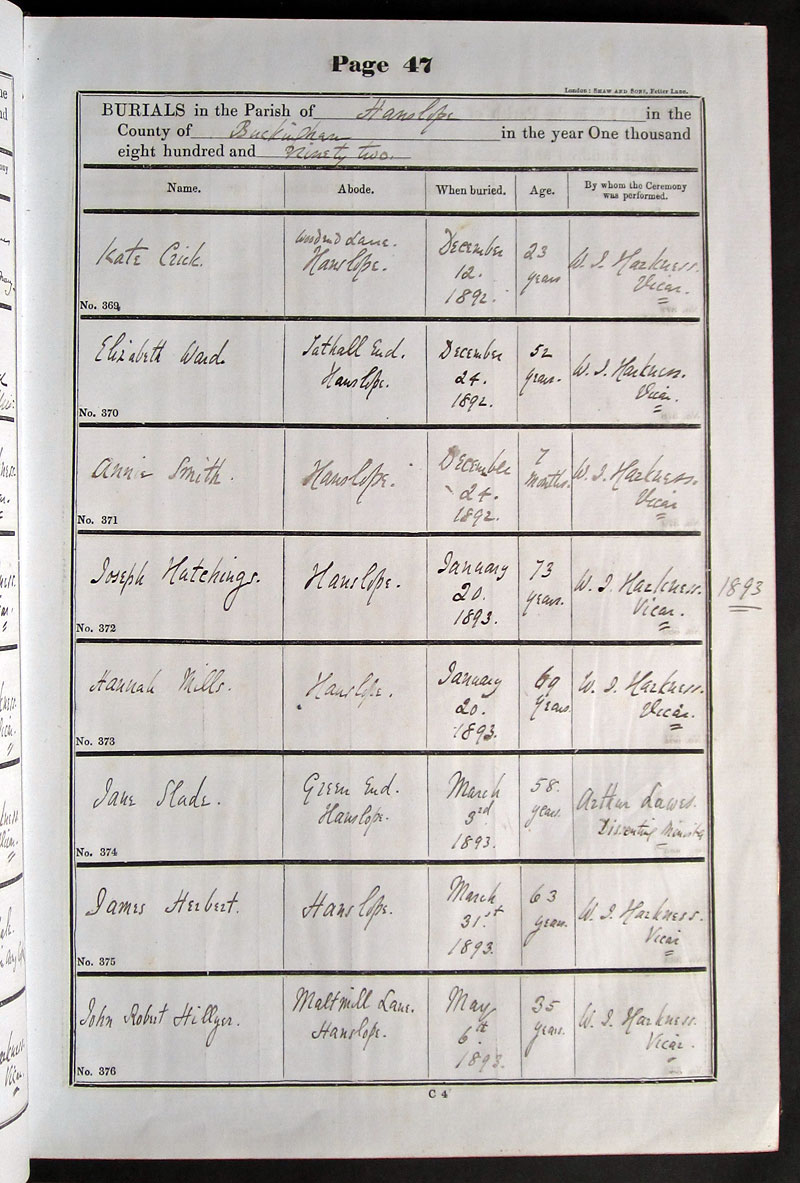 Page 47
London: SHAW AND SONS, Fetter Lane.
BURIALS in the Parish of Hanslope in the
County of Buckingham in the year One thousand
eight hundred and Ninety two.
Name. Abode. When buried. Age. By whom the Ceremony was performed.
Kate Crick.
Woodend Lane.
Hanslope.
December
12.
1892.
23
years
W. J. Harkness.
Vicar.
No. 369
Elizabeth Ward
Tathall End.
Hanslope.
December
24.
1892.
52
years.
W. J. Harkness.
Vicar.
No. 370
Annie Smith.
Hanslope.
December
24.
1892.
7
months.
W. J. Harkness.
Vicar
No. 371
Joseph Hutchings.
Hanslope.
January
20.
1893.
73
years.
W. J. Harkness.
Vicar.
1893
No. 372
Hannah Mills.
Hanslope.
January
20.
1893.
69
years.
W. J. Harkness.
Vicar.
No. 373
Jane Slade.
Green End.
Hanslope.
March
3rd
1893.
58
years.
Arthur Lawes.
Dissenting Minister
No. 374
James Herbert.
Hanslope.
March
31st
1893.
63
years.
W. J. Harkness.
Vicar
No. 375
John Robert Hillyer.
Maltmill Lane.
Hanslope.
May
6th
1893.
35
years.
W. J. Harkness.
Vicar.
No. 376
C 4